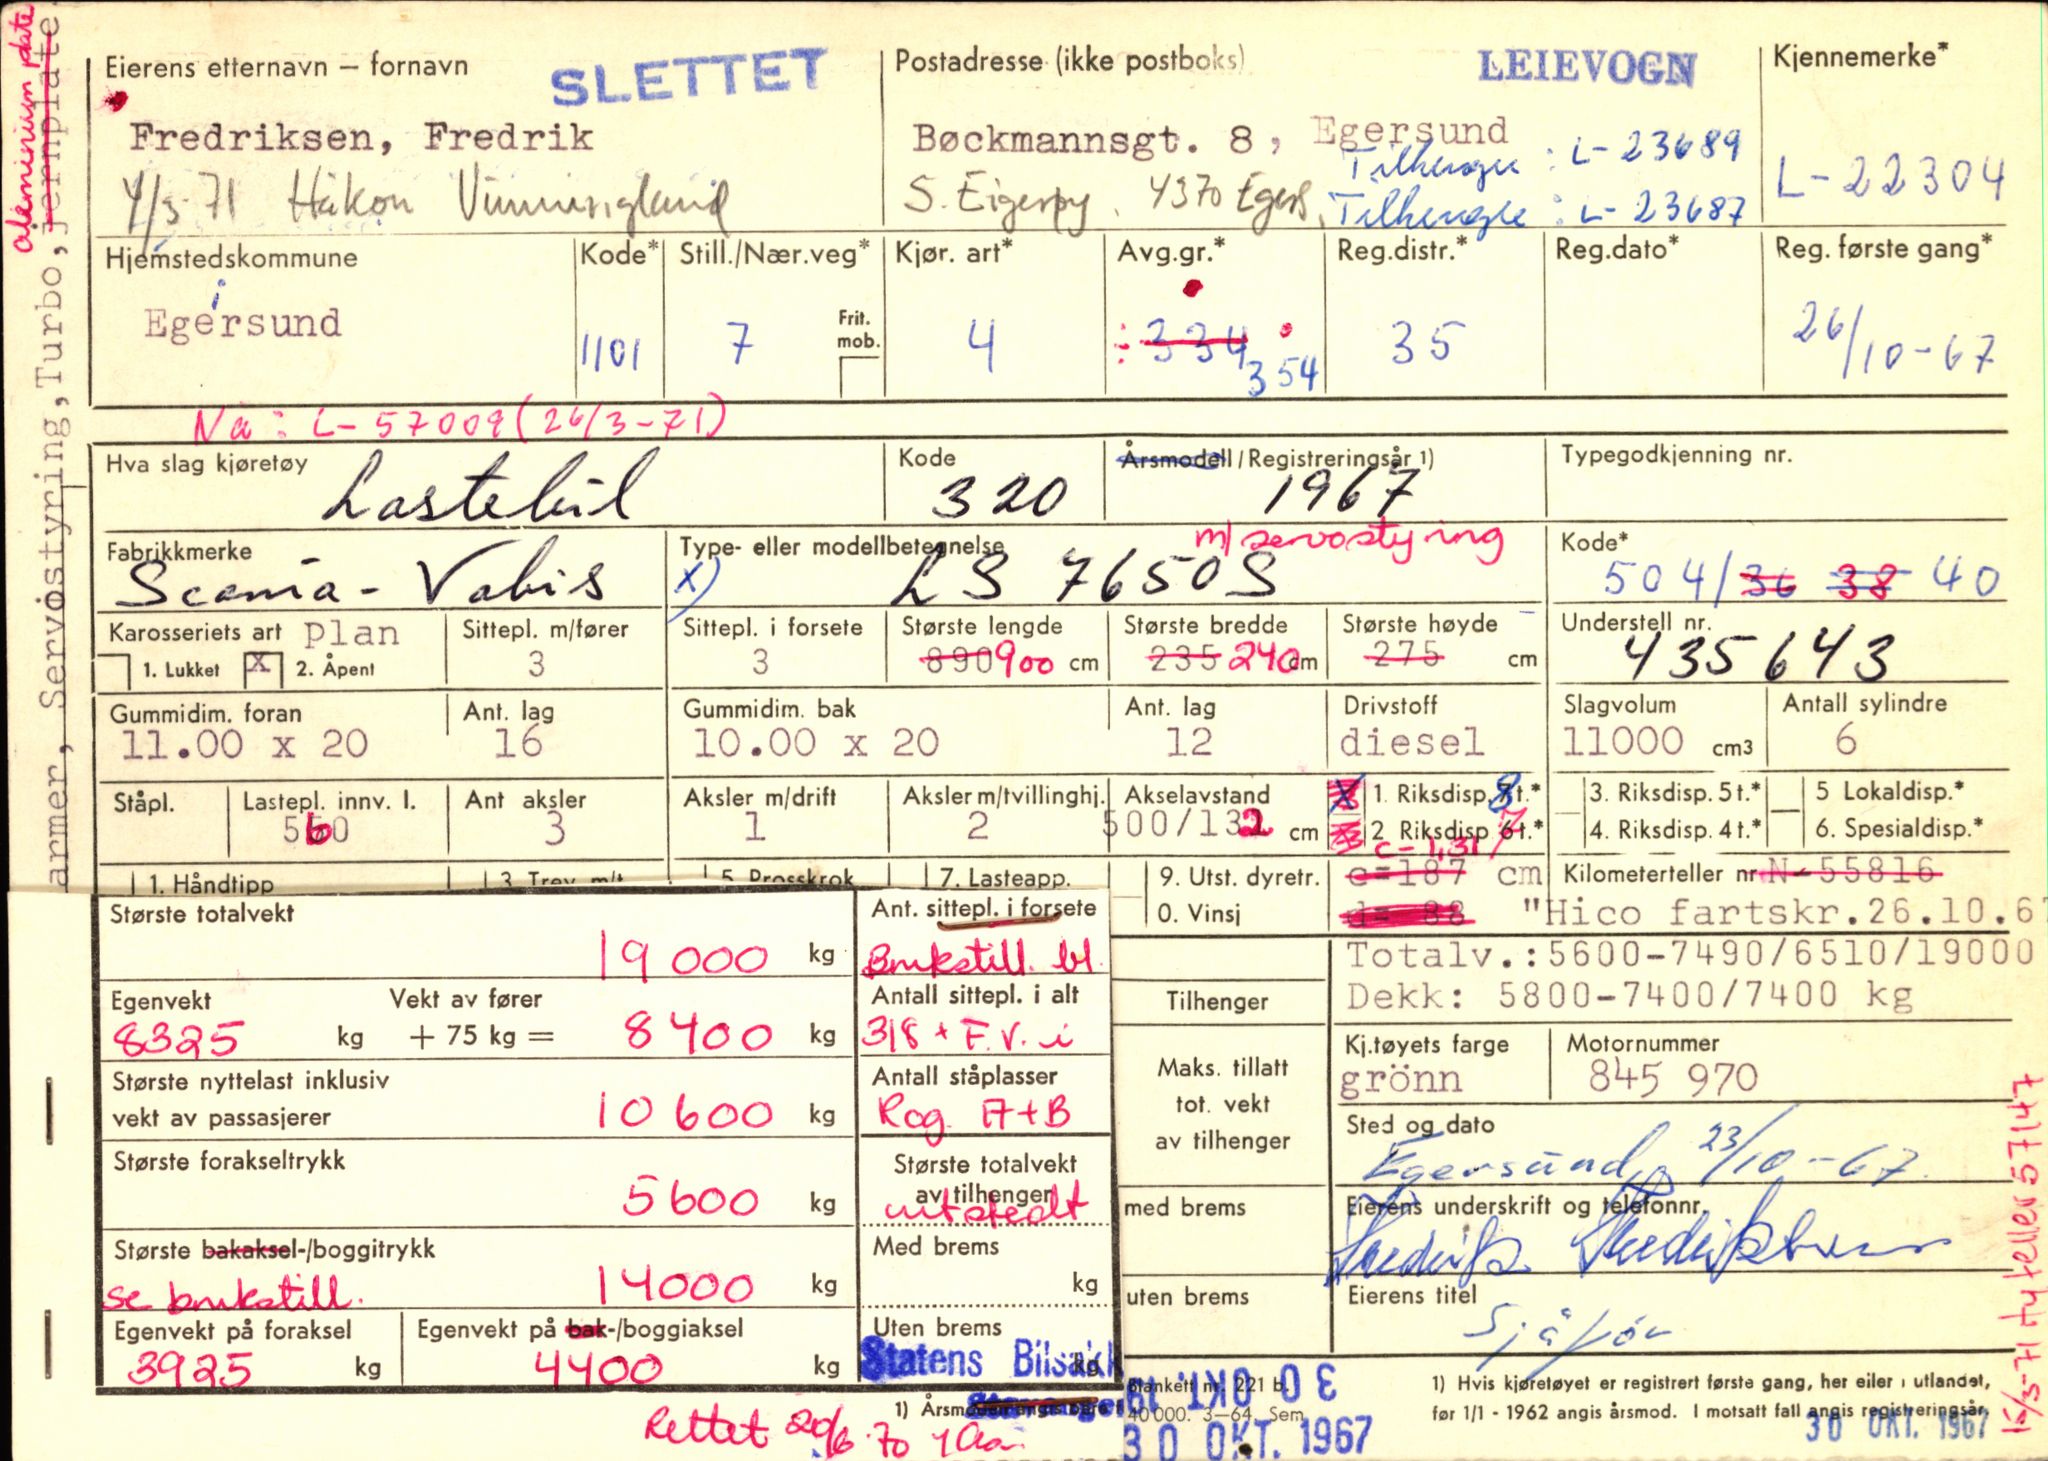 Eierens etternavn – fornavn SLETTET Postadresse (ikke postboks) LEIEVOGN Kjennemerke*
Fredriksen, Fredrik Bøckmannsgt. 8, Egersund
Tilhenger : L-23689
L-22304
4/3-71 Håkon S. Eigerøy, 4370 Egers.
Tilhenger : L-23687
Hjemstedskommune Kode* Still./Nær.veg* Kjør. art* Avg.gr.* Reg.distr.* Reg.dato* Reg. første gang*
Egersund 1101 7 Frit. mob. 4 334 354 35 26/10-67
Nå: L-57009 (26/3-71)
Hva slag kjøretøy Kode Årsmodell/Registreringsår 1) Typegodkjenning nr.
Lastebil 320 1967
m/servostyring
Fabrikkmerke Type- eller modellbetegnelse Kode*
Scania-Vabis x) LS 7650S 504/36 38 40
Karosseriets art plan Sittepl. m/fører Sittepl. i forsete Største lengde Største bredde Største høyde Understell nr.
1. Lukket x 2. Åpent 3 3 890 900 cm 235 240 cm 275 cm 435643
Gummidim. foran Ant. lag Gummidim. bak Ant. lag Drivstoff Slagvolum Antall sylindre
11.00 x 20 16 10.00 x 20 12 diesel 11000 cm3 6
Ståpl. Lastepl. innv. l. Ant aksler Aksler m/drift Aksler m/tvillinghj. Akselavstand X 1. Riksdisp. 8 t.* 3. Riksdisp. 5 t.* 5 Lokaldisp.*
560 3 1 2 500/132 cm 2 Riksdisp 6 t.* 7 4. Riksdisp. 4 t.* 6. Spesialdisp.*
c-1,31
1. Håndtipp 5 Presskrok 7. Lasteapp. 9. Utst. dyretr. c=187 cm Kilometerteller nr N-55816
0. Vinsj d= 88 "Hico fartskr.26.10.67
Totalv.:5600-7490/6510/19000
Dekk: 5800-7400/7400 kg
Største totalvekt
19 000 kg
Ant. sittepl. i forsete
Brukstill. bl.
Egenvekt Vekt av fører
8325 kg + 75 kg = 8400 kg
Antall sittepl. i alt
3/8 + F.V. i
Største nyttelast inklusiv
vekt av passasjerer 10 600 kg
Antall ståplasser
Rog. A+B
Største forakseltrykk
5600 kg
Største totalvekt
av tilhenger
utstedt
Største bakaksel-/boggitrykk
se brukstill. 14000 kg
Med brems
kg
Egenvekt på foraksel Egenvekt på bak-/boggiaksel
3925 kg 4400 kg
Uten brems
kg
Statens Bilsakk
Tilhenger
Maks. tillatt
tot. vekt
av tilhenger
med brems
uten brems
Kj.tøyets farge Motornummer
grönn 845 970
Sted og dato
Egersund, 23/10-67.
Eierens underskrift og telefonnr.
Fredrik Fredriksen
Eierens titel
Sjåfør
1) Årsm
Blankett nr. 221 b.
40 000. 3–64. Sem
30 OKT. 19
30 OKT. 1967
1) Hvis kjøretøyet er registrert første gang, her eller i utlandet,
før 1/1 - 1962 angis årsmod. I motsatt fall angis registreringsår.
30 OKT. 1967
Rettet 20/6-70
armer, Servostyring,Turbo,jernplate
aleminium plate
15/3-71 Ny teller 57147